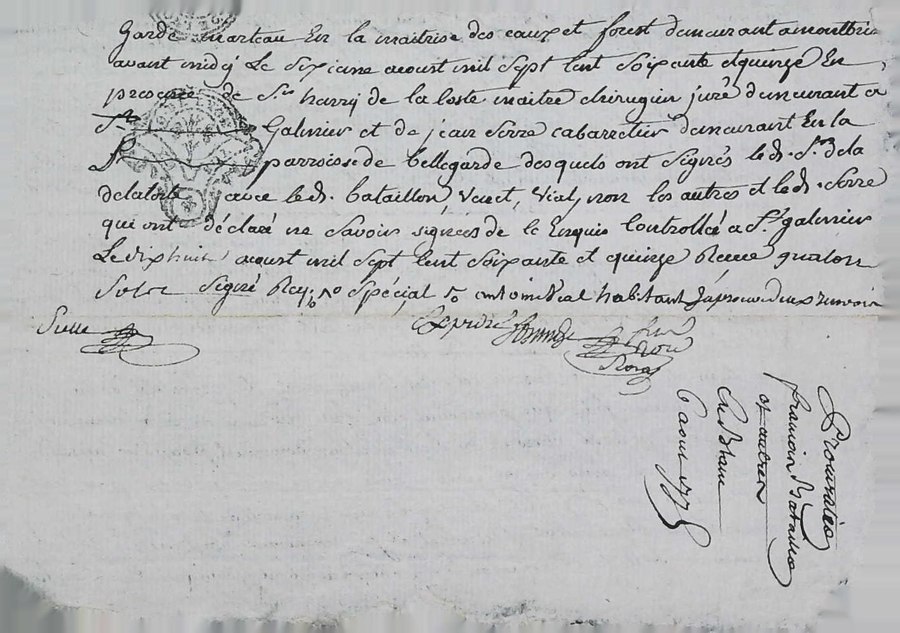 Garde marteau En la maitrise des eaux et forest demeurant a montbris
avant midy Le sixieme aoust mil sept cent soixante et quinze En
presence de Sr harry de la coste maitre chirugien juré demeurant a
St Galmier et de jean Serre cabarretier demeurant En la
parroisse de bellegarde desquels ont signés led. Sr de la
delatode avec led. bataillon, Vial, non les autres et led. Serre
qui ont déclaré ne savoir signer de ce Enquis Controllé a St galmier
Le dix huit aoust mil sept cent soixante et quinze Receu quatorze
sols Signé Rey spécial antoine Vial habitant
Expedié
Procuration
francoin Bataillon
et autres
6 aout 1775